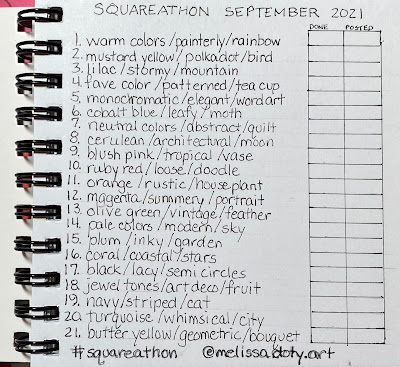 SQUAREATHON SEPTEMBER 2021
DONE POSTED
1. warm colors/painterly/rainbow
2. mustard yellow/polkadot/bird
3. lilac/stormy/mountain
4. fave color/patterned/tea cup
5. monochromatic/elegant/word art
6. cobalt blue/leafy/moth
7. neutral colors/abstract/quilt
8. cerulean/architectural/moon
9. blush pink/tropical/vase
10. ruby red/loose/doodle
11. orange/rustic/house plant
12. magenta/summery/portrait
13. olive green/vintage/feather
14. pale colors/modern/sky
15. plum/inky/garden
16. coral/coastal/stars
17. black/lacy/semi circles
18. jewel tones/art deco/fruit
19. navy/striped/cat
20. turquoise/whimsical/city
21. butter yellow/geometric/bouquet
#squareathon @melissa.doty.art